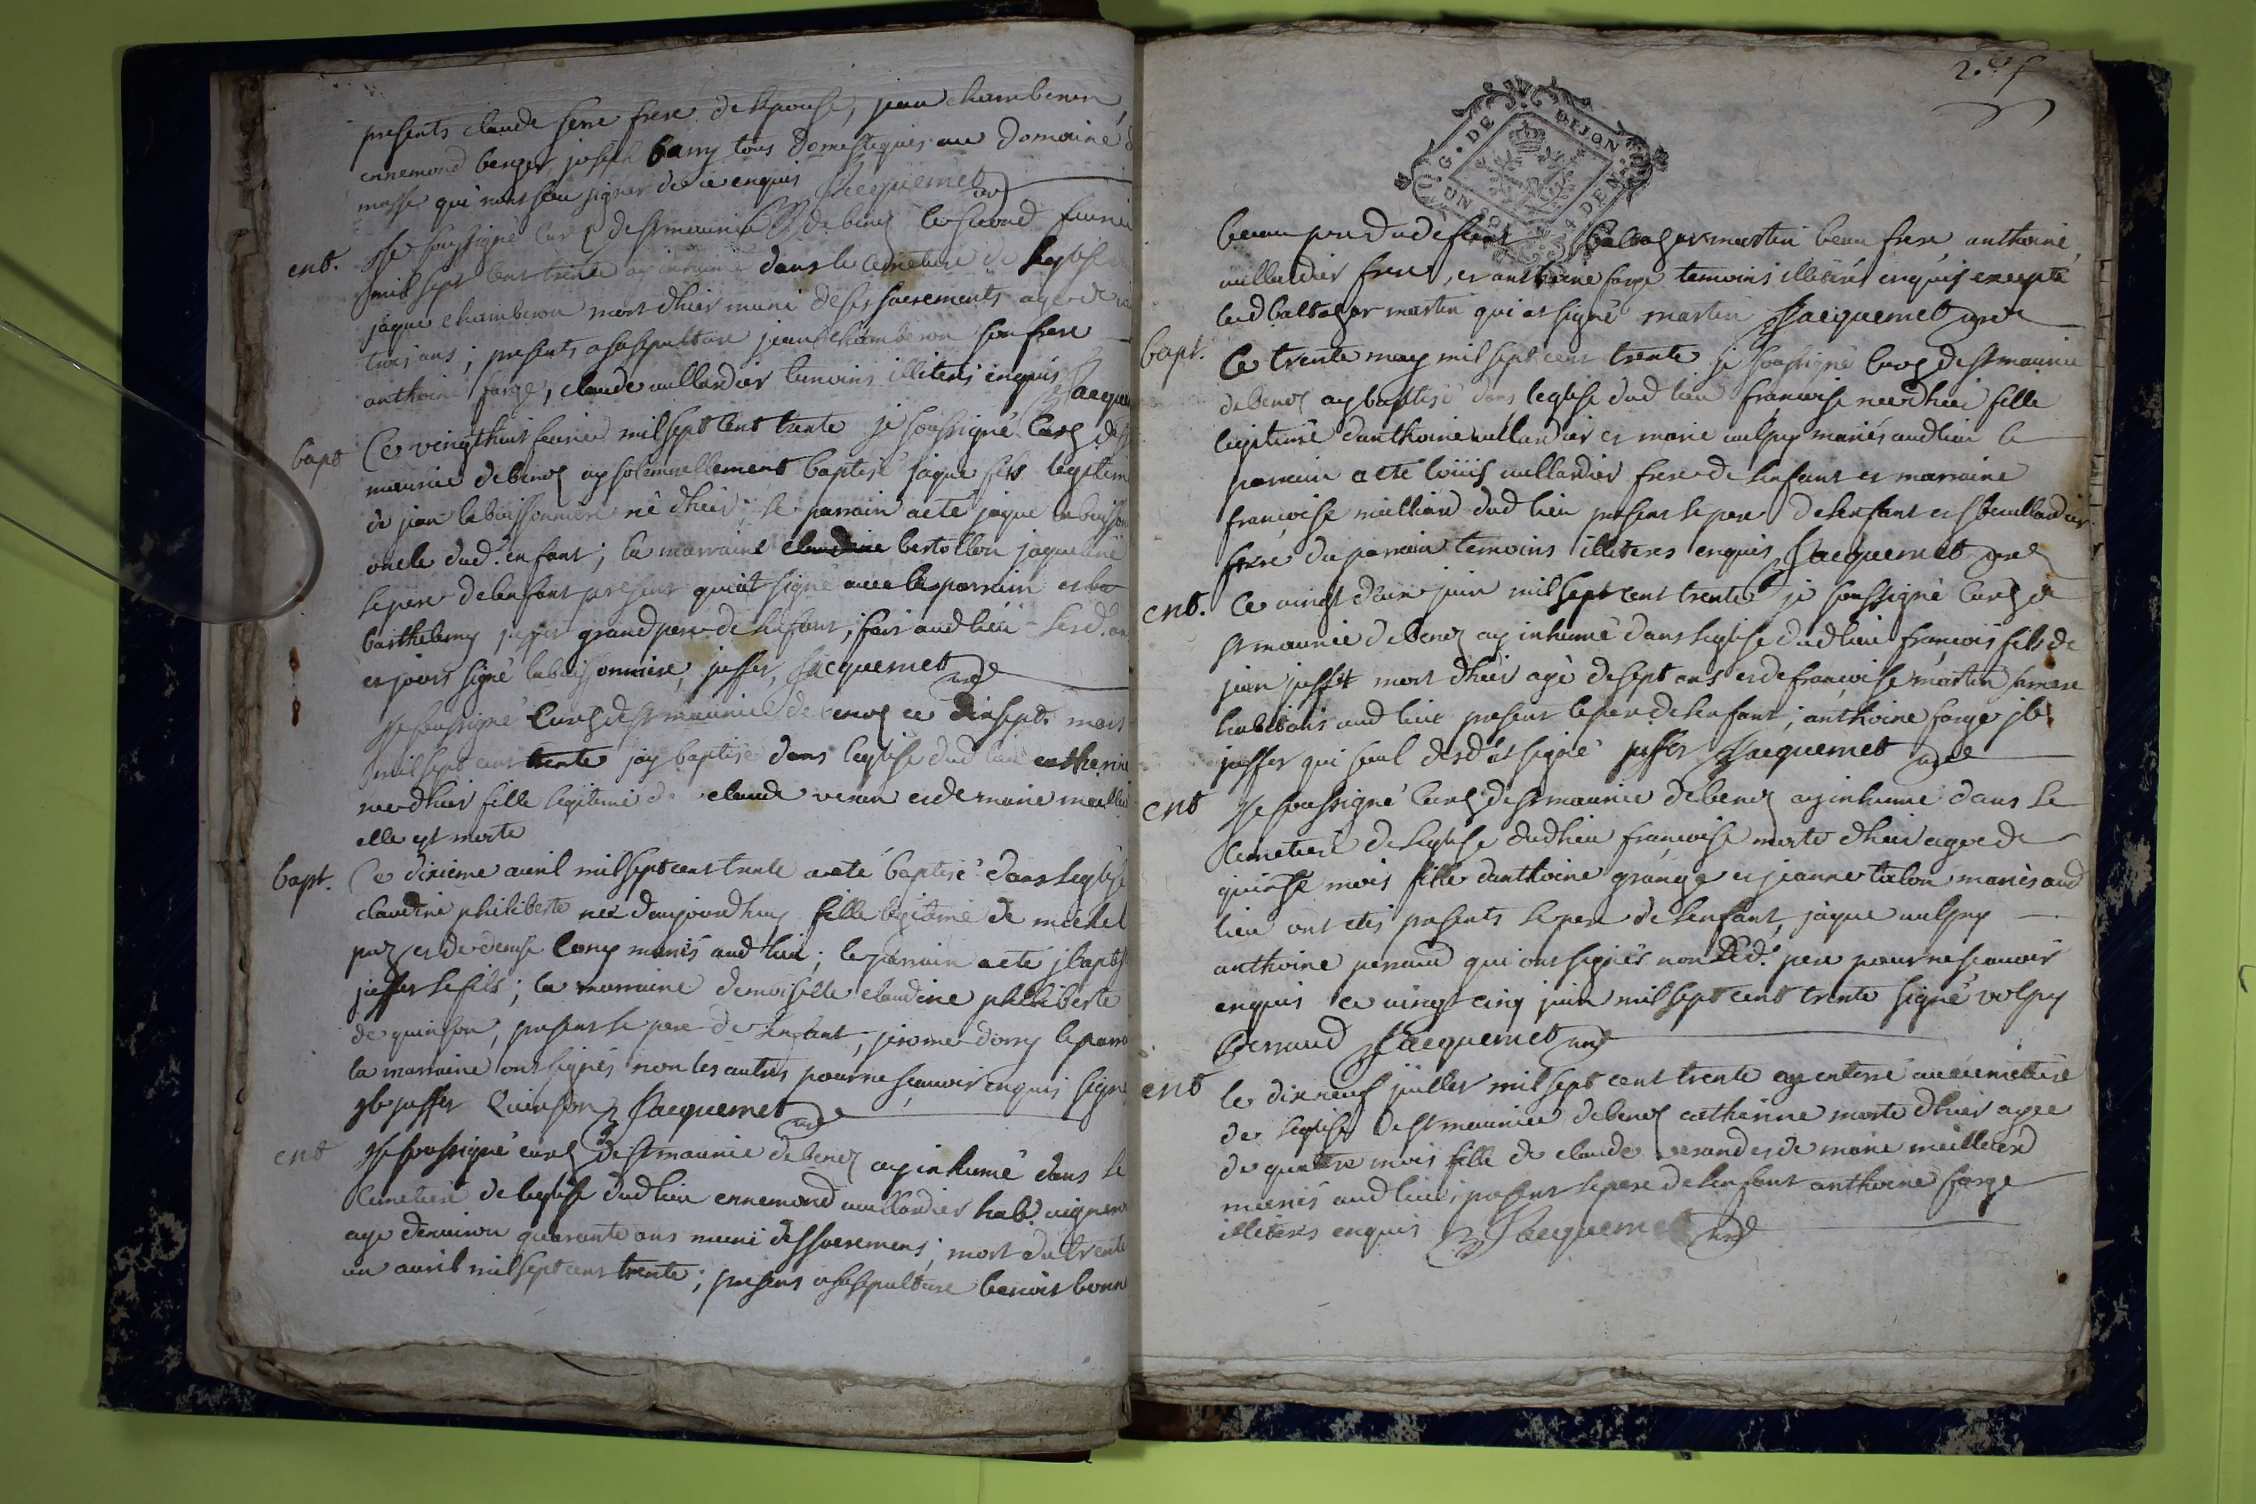 presents claude serre frere de lepouse, jean chamberon
ennemond berger joseph barry tous domestiques au domaine
masse qui nont sceu signer de ce enquis Jacquemet curé
ent. Je soussigné curé de st maurice de benos le second feurie
mil sept cent trente ay inhumé dans le cemetiere de leglise
jaque chamberon mort dhier muni de ses sacrements age de
trois ans ; presents a sa sepulture jean chamberon son frere
anthoine farge, claude aullandier temoins illiterés enquis Jacque
bapt Ce vingt huit feurier mil sept cent trente je soussigné curé de st
maurice de benos ay solemnellement baptisé jaque fils legitim
de jean labuissonniere né dhier le parrain a eté jaque labuisson
oncle dud. enfant ; la marraine bertollon jaqueline
le pere de lenfant present qui ait signé avec le parrain et
barthelemy juffet grand pere de lenfant ; fait aud lieu
et jours signé labuissonniere, juffet, Jacquemet curé
Je soussigné curé de st maurice de benos ce dixsept. mars
mil sept cent trente jay baptisé dans leglise dud lieu catherine
née dhier fille legitime de claude veran et de marie meille
elle est morte
bapt. Ce dixieme auril mil sept cent trente a eté baptisé dans leglise
claudine philiberte née daujourdhuy fille legitime de michel
et de denise cony mariés aud lieu ; le parrain a eté j bapt
juffet le fils ; la marraine demoiselle claudine philiberte
de quinson, present le pere de lenfant, jerome dorry le parra
la marraine ont signés non les autres pour ne scauoir enquis signé
jb juffet Quinson Jacquemet curé
ent Je soussigné curé de st maurice de benos ay inhumé dans le
cemetiere de leglise dud lieu ennemond aullandier hab. uigneron
age denuiron quarante ans muni des sacremens ; mort du trente
un auril mil sept cent trente ; presens a sa sepulture benoit bonn
2.e f
G. DE DIJON
UN SOL 4 DEN
beau pere du defunt baltazar martin beau frere anthoine
aullandier frere, et anthoine farge temoins illiterés enquis excepté
led baltazar martin qui at signé martin Jacquemet curé
bapt. Ce trente may mil sept cent trente je soussigné curé de st maurice
de benos ay baptisé dans leglise dud lieu francoise née dhier fille
legitime danthoine aullandier et marie uulpy mariés aud lieu le
parrain a eté loüis aullandier frere de lenfant et marraine
francoise millian dud lieu present le pere de lenfant et aullandier
frere du parrain temoins illiteres enquis Jacquemet curé
ent. Ce uingt dun juin mil sept cent trente je soussigné curé de
st maurice de benos ay inhumé dans leglise dud lieu francois fils de
jean juffet mort dhier agé de sept ans et de francoise martin sa mere
habitans aud lieu present le pere de lenfant ; anthoine farge jb
juffet qui seul desd at signé juffet Jacquemet curé
ent Je soussigné curé de st maurice de benos ay inhumé dans le
cemetiere de leglise dud lieu francoise morte dhier agee de
quinse mois fille danthoine grange et jeanne talon mariés aud
lieu ont etés presents le pere de lenfant, jaque uulpy
anthoine perraud qui ont signés non led. pere pour ne scauoir
enquis ce uingt cinq juin mil sept cent trente signé volpy
Perraud Jacquemet curé
ent le dixneuf juillet mil sept cent trente ay enterré au cemetiere
de leglise de st maurice de benos catherine morte dhier agee
de quattre mois fille de claude verand et de marie meilleurd
mariés aud lieu ; present le pere de lenfant anthoine farge
illiteres enquis Jacquemet curé